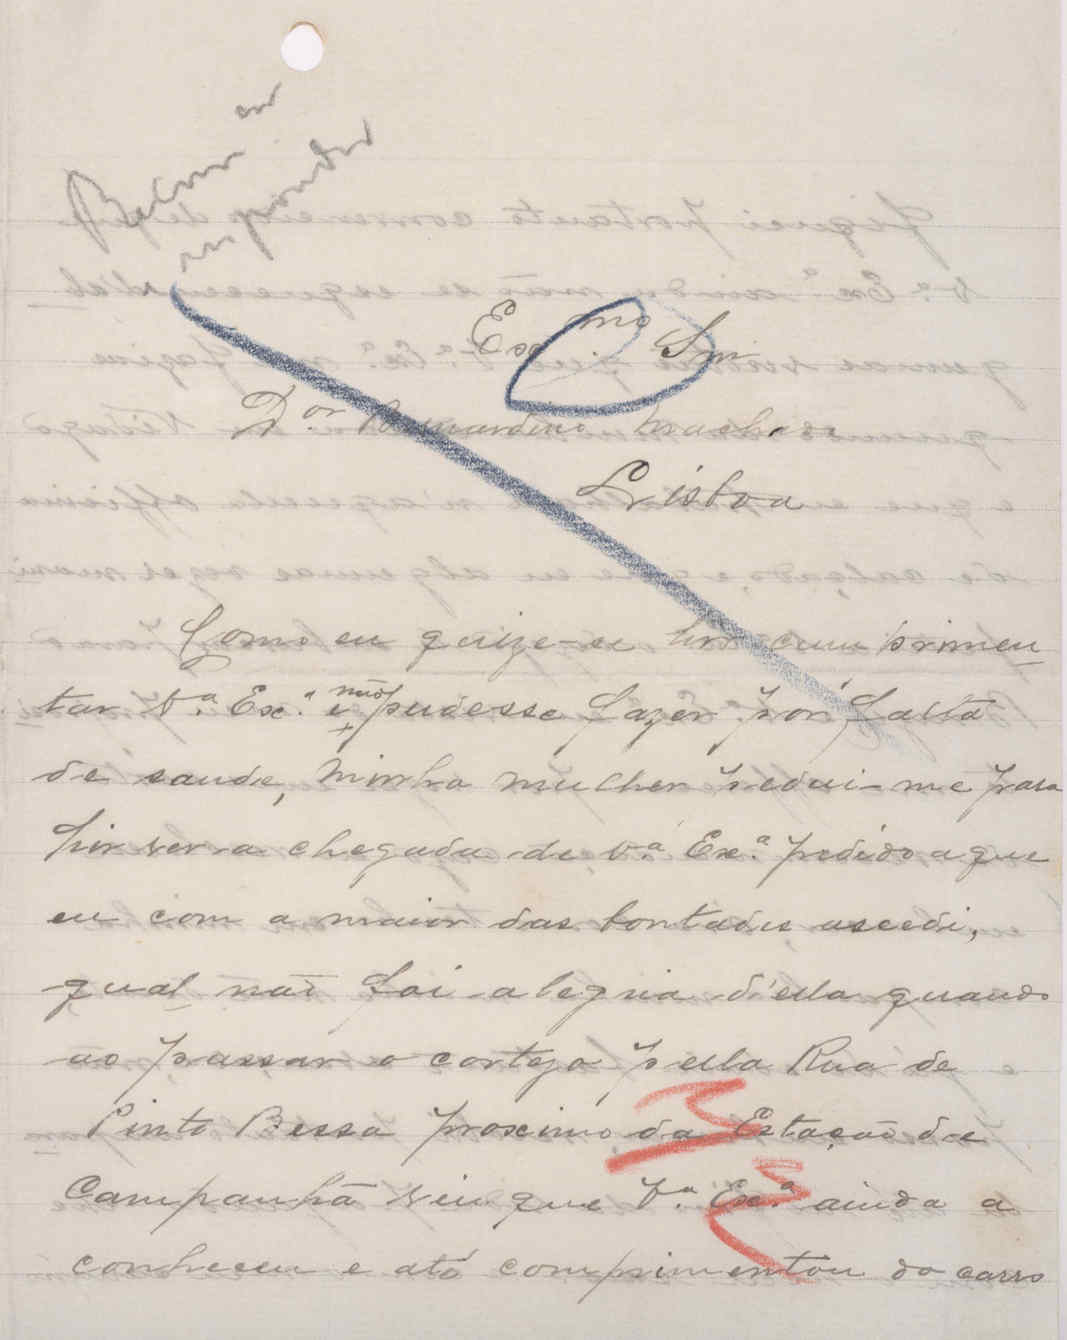 Ex.mo Snr
D.or Bernardino Machado
Lisboa
Como eu quize-se hir cumprimen
tar V.ª Ex.ª e não pudesse fazer por falta
de saude, minha mulher pediu-me para
hir ver a chegada de V.ª Ex.ª pedido a que
eu com a maior das bontades accedi,
qual não foi alegria d'ella quando
ao passar o cortejo pella Rua de
Pinto Bessa proximo da Estação de
Campanhã viu que V.ª Ex.ª ainda a
conheceu e até comprimentou do carro